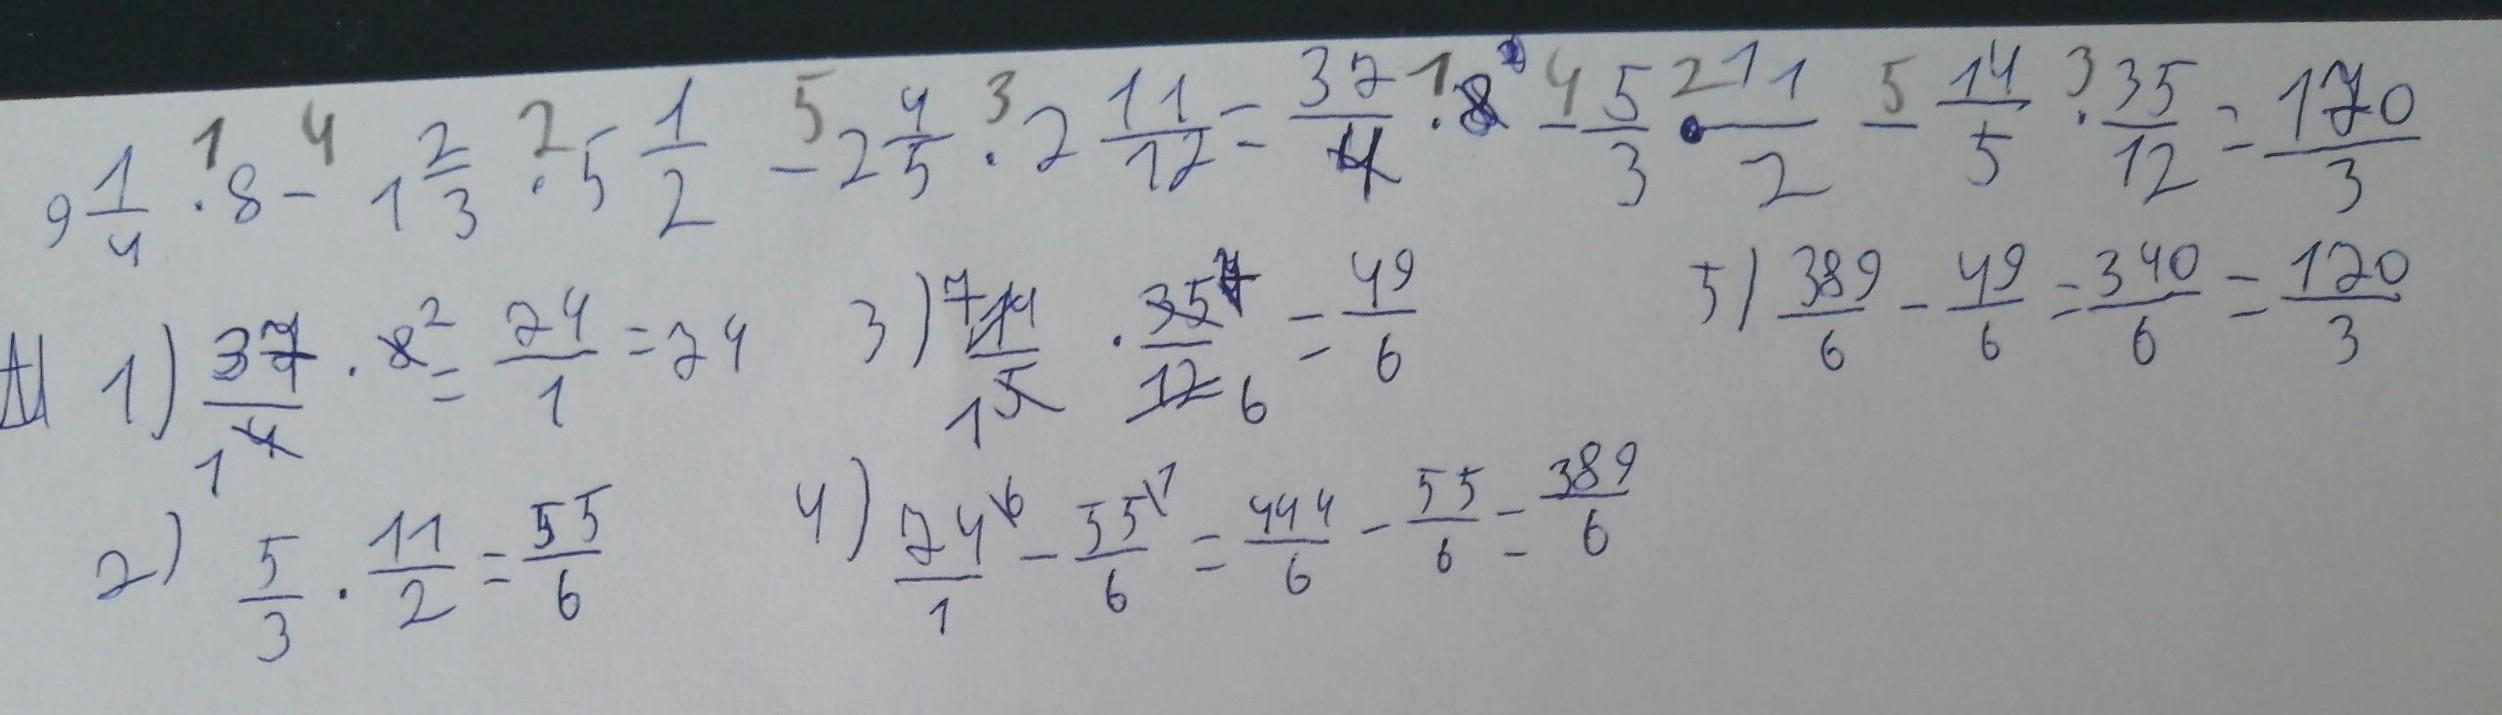 9 1/4 · 8 - 1 2/3 · 5 1/2 - 2 4/5 · 2 11/12 = 37/4 · 8 2 - 5/3 · 11/2 - 14/5 · 35/12 = 170/3
1 4 2 5 3 1 4 2 5 3
1) 37/4 1 · 8 2 = 74/1 = 74
3) 7 14/5 1 · 35 7/12 6 = 49/6
5) 389/6 - 49/6 = 340/6 = 170/3
2) 5/3 · 11/2 = 55/6
4) 74 6/1 - 55 1/6 = 444/6 - 55/6 = 389/6